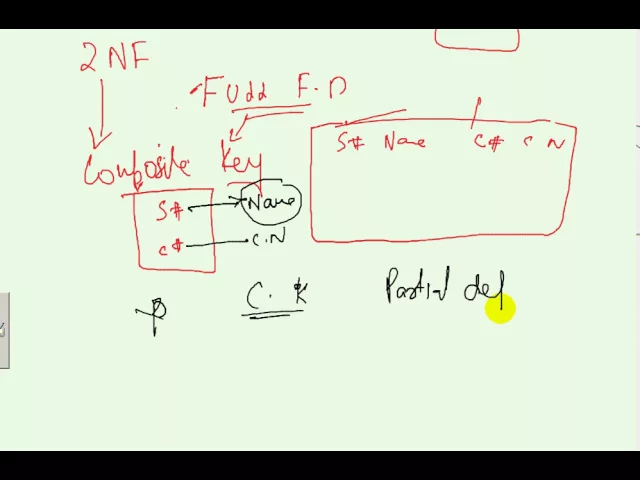 2NF
Fudd F.D
Composite Key
S# Name C# C N
S# Name
C# C.N
P C. K Partial def